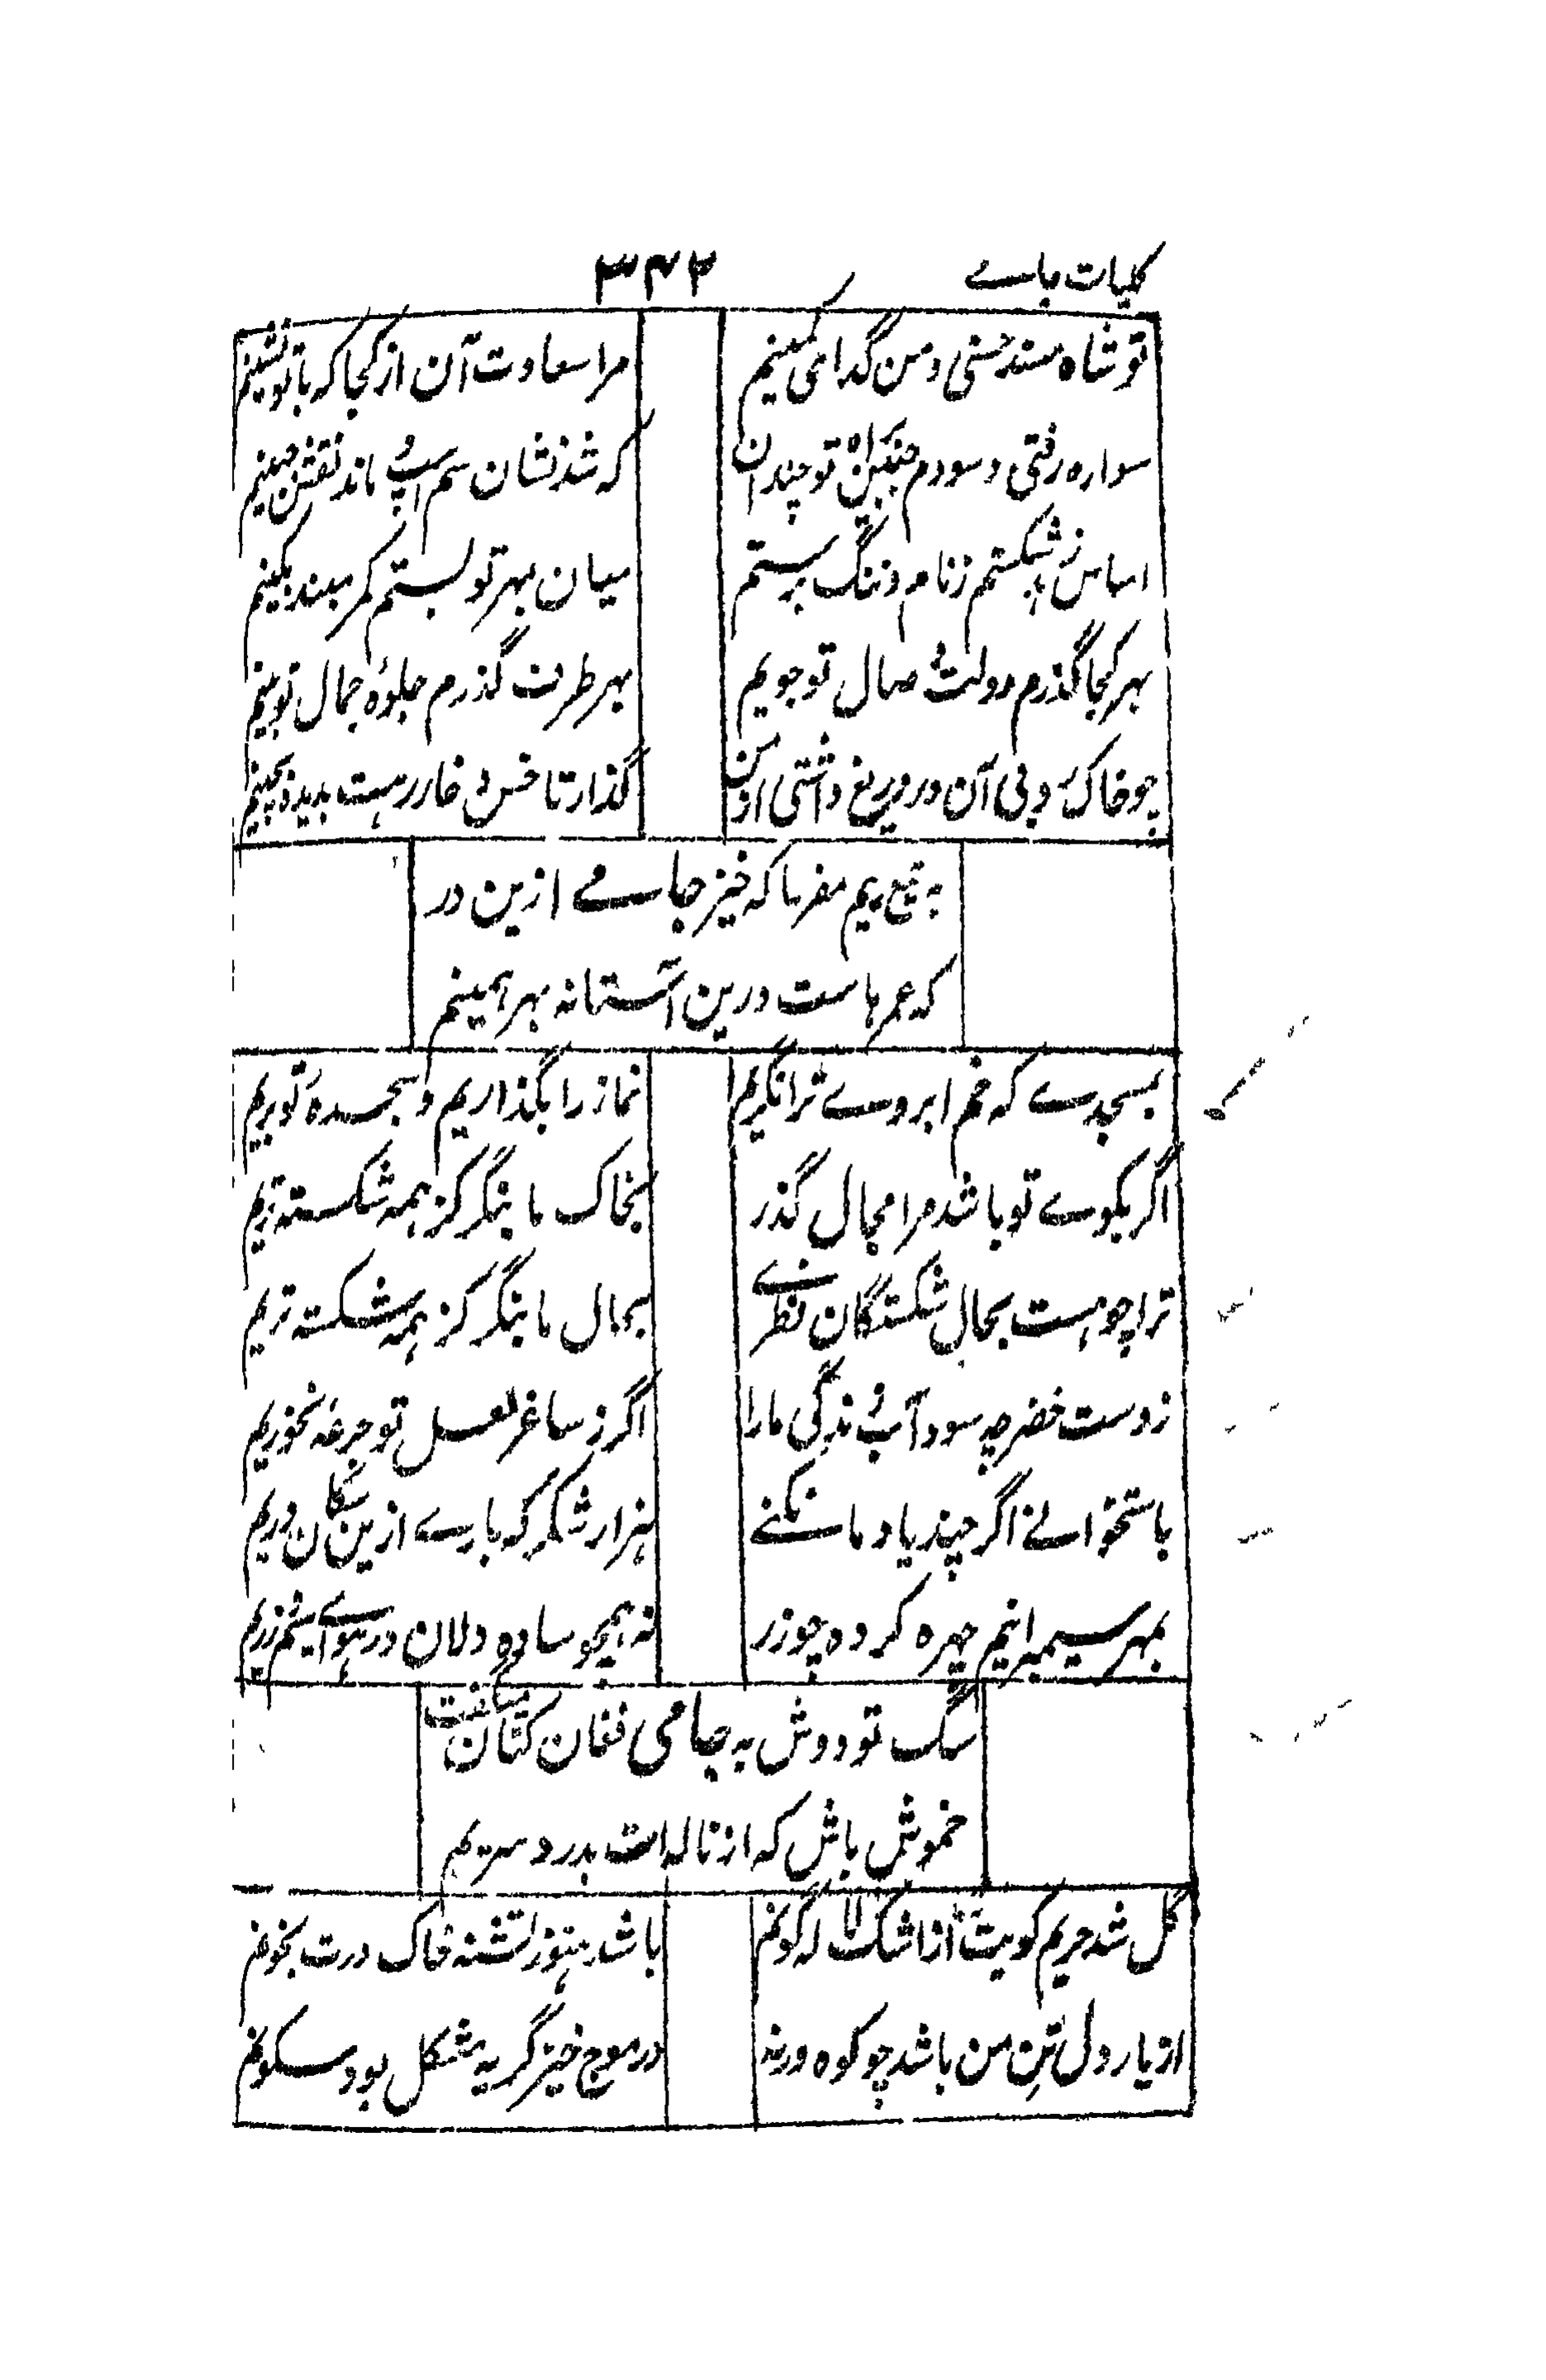 کلیات جامے
۳۴۲
تو شاه مسند حسنی و من گدای کمینم
مرا سعادت آن از کجا که با تو نشینم
سواره رفتی و سودم جبین براه تو چندان
که شد نشان سم اسپ تو ماند نقش جبینم
اساس زهد شکستم ز نام و ننگ برستم
میان بهر تو بستم کمر مبند بکینم
بهر کجا گذرم دولت وصال تو جویم
بهر طرف گذرم جلوهٔ جمال تو بینم
چو خاک روبی آن در دریغ داشتی از من
گذار تا خس و خار رهت بدیده بچینم
به تیغ بیم مفرما که خیز جامے ازین در
که عمرهاست درین آستانه بهر همینم
بمسجدے که خم ابروے ترا نگریم
نماز را بگذاریم و سجدهٔ تو بریم
اگر بکوے تو باشد مرا مجال گذر
بخاک ما بنگر کز همه شکسته تریم
ترا چو هست بحال شکستگان نظرے
بحال ما بنگر کز همه شکسته تریم
ز دست خضر چه سود آب زندگی ما را
اگر ز ساغر لعل تو جرعهٔ نخوریم
باستخوانے اگر چند یاد ما نکنے
هزار شکر که بارے ازین سگان دریم
بمهر سیمبرانیم چهره کرده چو زر
نه همچو ساده دلان در هواے سیم و زریم
سگ تو دوش به جامی فغان کنان میگفت
خموش باش که از ناله ات بدرد سریم
گل شد حریم کویت از اشک لاله گونم
باشد هنوز تشنه خاک درت بخونم
از بار دل تن من باشد چو کوه ورنه
در موج خیز گریه مشکل بود سکونم